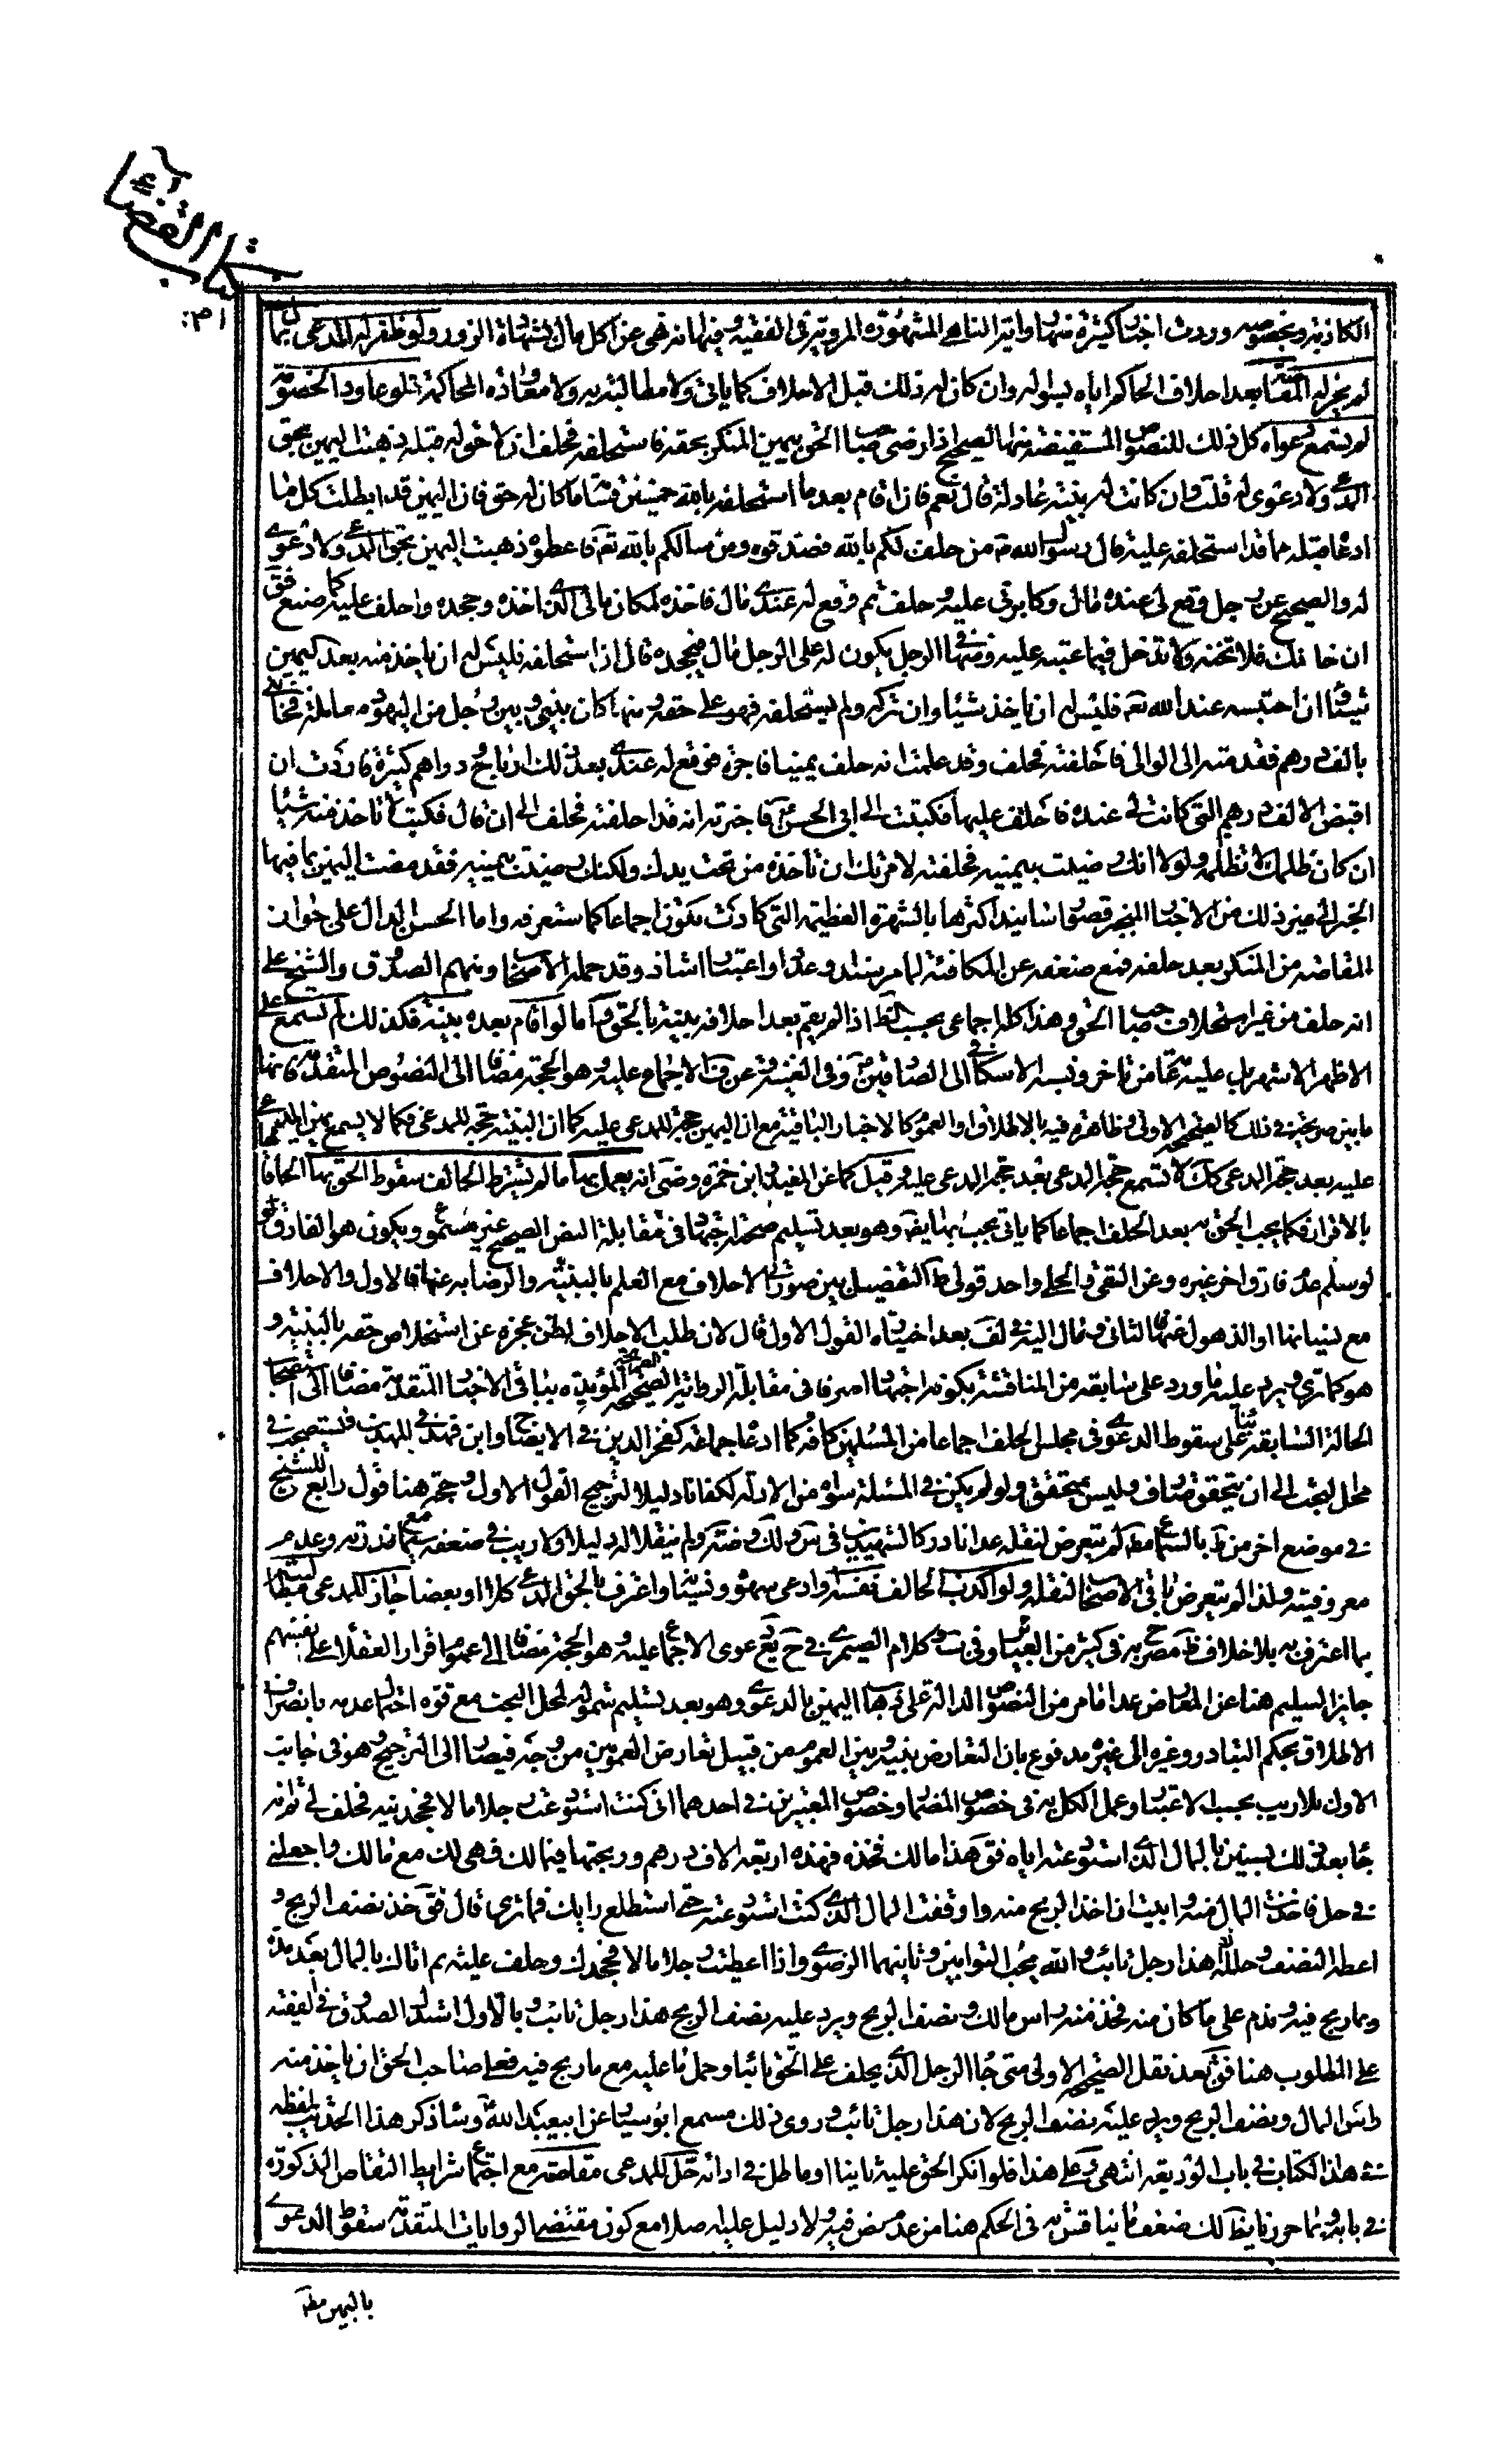 كتاب القضاء
الكاذبة وبخصوصه وردت اخبار كثيرة منها رواية المناهي المشهورة المروية في الفقيه وفيها نهى عن اكل مال بشهادة الزور ولو ظفر له المدعي بمال
لم يجز له المقاصة بعد احلاف الحاكم اياه بسؤاله وان كان له ذلك قبل الاحلاف كما يأتي ولا مطالبته به ولا معاودة المحاكمة فلو عاود الخصومة
لم يسمع دعواه كل ذلك للنصوص المستفيضة منها الصحيح اذا رضي صاحب الحق بيمين المنكر بحقه فاستحلفه فحلف ان لا حق له قبله ذهبت اليمين بحق
المدعي ولا دعوى له قلت وان كانت له بينة عادلة قال نعم فان اقام بعد ما استحلفه بالله خمسين قسامة ما كان له حق فان اليمين قد ابطلت كل ما
ادعاه قبله مما قد استحلفه عليه قال رسول الله ص من حلف لكم بالله فصدقوه ومن سالكم بالله تع فاعطوه ذهبت اليمين بحق المدعي ولا دعوى
له والصحيح عن رجل وقع لي عنده مال وكابرني عليه وحلف ثم وقع له عندي مال فاخذه لمكان مالي الذي اخذه وجحده واحلف عليه كما صنع فق
ان خانك فلا تخنه ولا تدخل فيما عتبه عليه ومنها في الرجل يكون له على الرجل مال فيجحده قال اذا استحلفه فليس له ان ياخذ منه بعد اليمين
شيئا وان احتبسه عند الله تع فليس له ان ياخذ شيئا وان تركه ولم يستحلفه فهو على حقه ومنها كان بيني وبين رجل من اليهود معاملة فخانني
بالف درهم فقدمته الى الوالي فاحلفته فحلف وقد علمت انه حلف يمينا فاجرة فوقع له عندي بعد ذلك ارباح ودراهم كثيرة فاردت ان
اقبض الالف درهم التي كانت لي عنده فاحلف عليها فكتبت الى ابي الحسن ع فاخبرته انه قد احلفته فحلف الى ان قال فكتب لا تاخذ منه شيئا
ان كان ظلمك فلا تظلمه ولولا انك رضيت بيمينه فحلفته لامرتك ان تأخذه من تحت يدك ولكنك رضيت بيمينه فقد مضت اليمين بما فيها
الخبر الى غير ذلك من الاخبار المنجبر قصور اسانيد اكثرها بالشهرة العظيمة التي كادت تكون اجماعا كما ستعرفه واما الحسن الدال على جواز
المقاصة من المنكر بعد حلفه فمع ضعفه عن المكافئة لما مر سندا وعددا واعتبارا شاذ وقد حمله الاصحاب ومنهم الصدوق والشيخ على
انه حلف من غير استحلاف صاحب الحق وهذا كله اجماعي بحسب الظ اذا لم يقم بعد احلافه بينة بالحق واما لو اقام بعده بينة فكذلك لم تسمع على
الاظهر الاشهر بل عليه عامة من تاخر ونسبه الاسكافي الى الصادقين ع وفي الغنية وعن ف الاجماع عليه وهو الحجة مضافا الى النصوص المتقدمة فانها
ما بين صريحة في ذلك كالصحيحة الاولى وظاهرة فيه بالاطلاق او العموم كالاخبار الباقية مع ان اليمين حجة للمدعى عليه كما ان البينة حجة للمدعي فكما لا يسمع يمين المدعى
عليه بعد حجة المدعي كك لا تسمع حجة المدعي بعد حجة المدعى عليه وقيل كما عن المفيد وابن حمزة وضى انه يعمل بها ما لم يشترط الحالف سقوط الحق بها الحاقا
بالاقرار فكما يجب الحق به بعد الحلف اجماعا كما ياتي يجب بها ايضا وهو بعد تسليم صحته اجتهاد في مقابلة النص الصحيح غير مسموع ويكون هو الفارق
لو سلم عدم فارق اخر غيره وعن التقي والحلي واحد قولي ط التفصيل بين صورتي الاحلاف مع العلم بالبينة والرضا به عنها فالاول والاحلاف
مع نسيانها او الذهول عنها فالثاني ومال اليه في لف بعد اختياره القول الاول قال لان طلب الاحلاف لظن عجزه عن استخلاص حقه بالبينة و
هو كما ترى ويرد عليه ما ورد على سابقه من المناقشة بكونه اجتهادا صرفا في مقابلة الرواية الصحيحة المؤيدة بباقي الاخبار المتقدمة مضافا الى استصحاب
الحالة السابقة بناء على سقوط الدعوى في مجلس الحلف اجماعا من المسلمين كافة كما ادعاه جماعة كفخر الدين في الايضاح وابن فهد في المهذب فيستصحب في
محل البحث الى ان يتحقق صارف وليس بمتحقق ولو لم يكن في المسئلة سواه من الادلة لكفانا دليلا لترجيح القول الاول وحجة هنا قول رابع للشيخ
في موضع اخر من ط بالسماع مط لم يتعرض لنقله عدا نادر كالشهيدين في س ولك وضة ولم ينقلا له دليلا ولا ريب في ضعفه سيما مع ندرته وعدم
معروفيته ولذا لم يتعرض باقي الاصحاب لنقله ولو اكذب الحالف نفسه وادعى سهوه ونسيانه واعترف بالحق المدعى كلا او بعضا جاز للمدعي مطالبته
بما اعترف به بلا خلاف ظ مصرح به في كثير من العبائر وفي ب وكلام الصيمري في ح يع دعوى الاجماع عليه وهو الحجة مضافا الى عموم اقرار العقلاء على انفسهم
جايز السليم هنا عن المعارض عدا ما مر من النصوص الدالة على ذهاب اليمين بالدعوى وهو بعد تسليم شموله لمحل البحث مع قوة احتمال عدمه بانصراف
الاطلاق بحكم التبادر وغيره الى غيره مدفوع بان التعارض بينه وبين العموم من قبيل تعارض العمومين من وجه فيصار الى الترجيح وهو في جانب
الاول بلا ريب بحسب الاعتبار وعمل الكل به في خصوص المضمار وخصوص المعتبرين في احدهما اني كنت استودعت رجلا مالا فجحدنيه فحلف لي ثم انه
جاء بعد ذلك بسنين بالمال الذي استودعته اياه فق هذا مالك فخذه فهذه اربعة الاف درهم وربحتها في مالك فهي لك مع مالك واجعلني
في حل فاخذت المال منه وابيت ان اخذ الربح منه واوقفت المال الذي كنت استودعته حتى استطلع رايك فما ترى قال فق خذ نصف الربح و
اعطه النصف وحلله ان هذا رجل تائب والله يحب التوابين وثانيهما الرضوي واذا اعطيت رجلا مالا فجحدك وحلف عليه ثم اتاك بالمال بعد مدة
وبما ربح فيه وندم على ما كان منه فخذ منه راس مالك ونصف الربح ورد عليه نصف الربح هذا رجل تائب وبالاول استدل الصدوق في الفقيه
على المطلوب هنا فق بعد نقل الصحيحة الاولى متى جاء الرجل الذي يحلف على الحق تائبا وحمل ما عليه مع ما ربح فيه فعلى صاحب الحق ان ياخذ منه
راس المال ونصف الربح ويرد عليه نصف الربح لان هذا رجل تائب وروى ذلك مسمع ابو سيار عن ابيعبد الله ع وساذكر هذا الحديث بلفظه
في هذا الكتاب في باب الوديعة انتهى وعلى هذا فلو انكر الحق عليه ثانيا او ماطل في ادائه حل للمدعي مقاصته مع اجتماع شرايط التقاص المذكورة
في بابه وبما حررنا يظ لك ضعف ما يناقش به في الحكم هنا من عدم نص فيه ولا دليل عليه صلا مع كون مقتضى الروايات المتقدمة سقوط الدعوى
باليمين مط